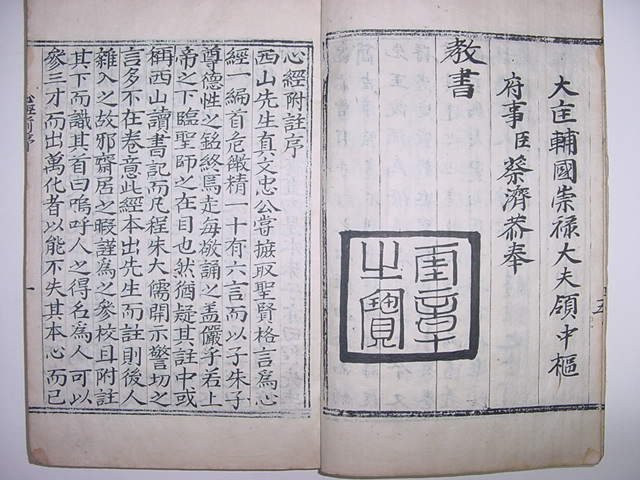 大匡輔國崇禄大夫領中樞
府事臣蔡濟恭奉
教書
奎章之寶
心經附註序
西山先生真文忠公甞摭取聖賢格言為心
經一編首危微精一十有六言而以子朱子
尊德性之銘終焉走每敬誦之盖儼乎若上
帝之下臨聖師之在目也然猶疑其註中或
稱西山讀書記而凡程朱大儒開示警切之
言多不在卷意此經本出先生而註則後人
雜入之故邪齋居之暇謹為之參校且附註
其下而識其首曰嗚呼人之得名為人可以
參三才而出萬化者以能不失其本心而已
一